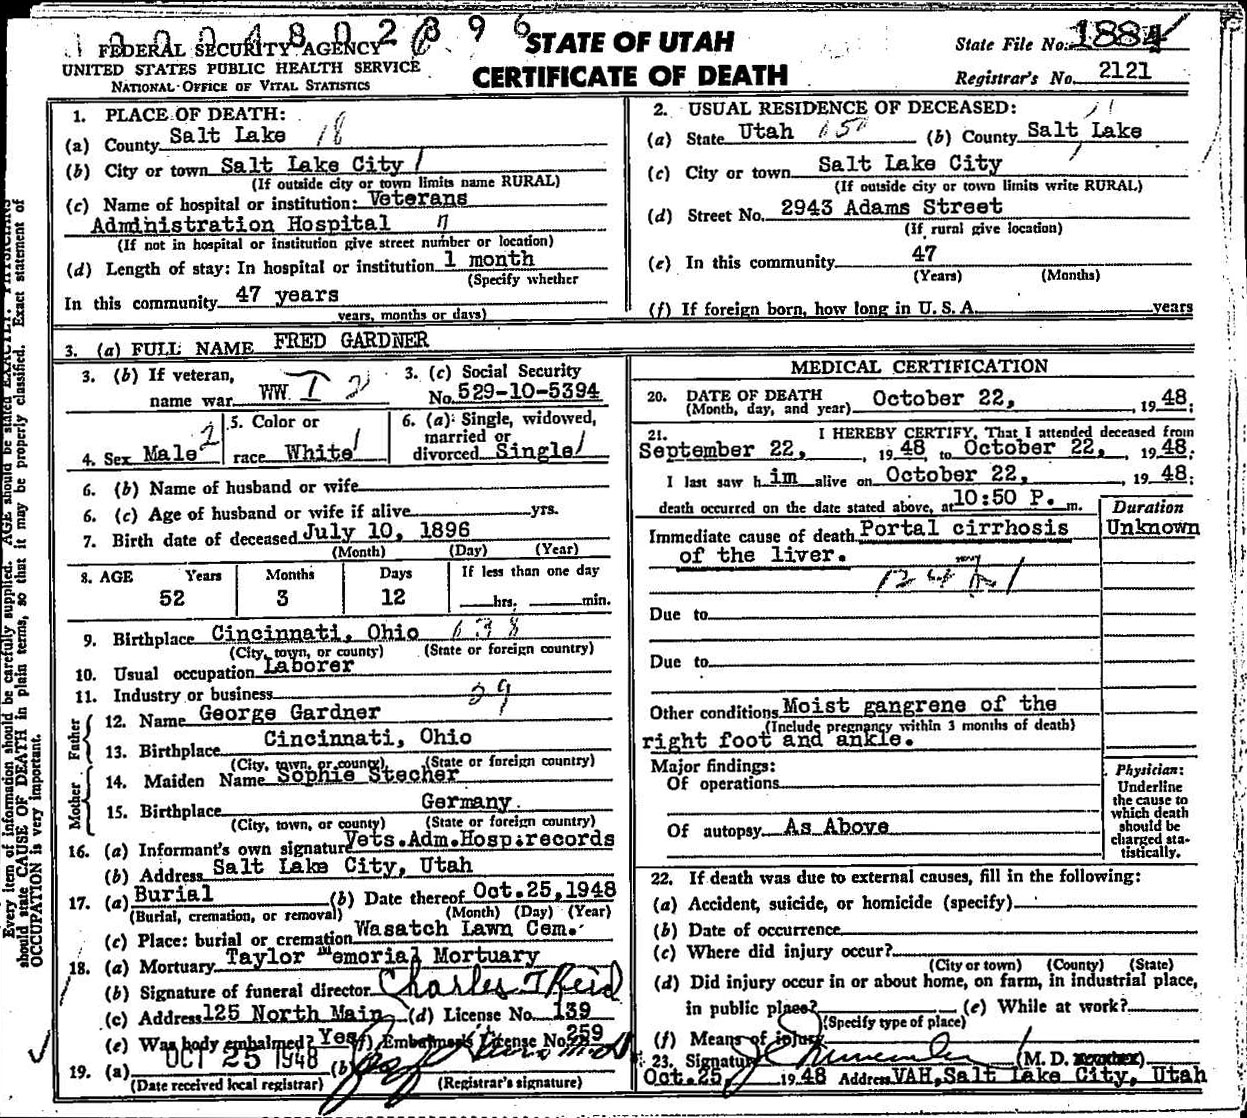 0004802396
FEDERAL SECURITY AGENCY
UNITED STATES PUBLIC HEALTH SERVICE
NATIONAL OFFICE OF VITAL STATISTICS
STATE OF UTAH
CERTIFICATE OF DEATH
State File No. 1884
Registrar's No. 2121
1. PLACE OF DEATH:
(a) County Salt Lake 18
(b) City or town Salt Lake City 1
(If outside city or town limits name RURAL)
(c) Name of hospital or institution: Veterans
Administration Hospital
(If not in hospital or institution give street number or location)
(d) Length of stay: In hospital or institution 1 month
(Specify whether
In this community 47 years
years, months or days)
2. USUAL RESIDENCE OF DECEASED:
(a) State Utah (b) County Salt Lake
(c) City or town Salt Lake City
(If outside city or town limits write RURAL)
(d) Street No. 2943 Adams Street
(If rural give location)
(e) In this community 47
(Years) (Months)
(f) If foreign born, how long in U. S. A. years
3. (a) FULL NAME FRED GARDNER
3. (b) If veteran, name war WW I 2
3. (c) Social Security No. 529-10-5394
4. Sex Male 2
5. Color or race White 1
6. (a) Single, widowed, married or divorced Single 1
6. (b) Name of husband or wife
6. (c) Age of husband or wife if alive yrs.
7. Birth date of deceased July 10, 1896
(Month) (Day) (Year)
8. AGE Years Months Days If less than one day
52 3 12 hrs. min.
9. Birthplace Cincinnati, Ohio 638
(City, town, or county) (State or foreign country)
10. Usual occupation Laborer
11. Industry or business 29
Father
12. Name George Gardner
13. Birthplace Cincinnati, Ohio
(City, town, or county) (State or foreign country)
Mother
14. Maiden Name Sophie Stecher
15. Birthplace Germany.
(City, town, or county) (State or foreign country)
16. (a) Informant's own signature Vets.Adm.Hosp.records
(b) Address Salt Lake City, Utah
17. (a) Burial (b) Date thereof Oct.25,1948
(Burial, cremation, or removal) (Month) (Day) (Year)
(c) Place: burial or cremation Wasatch Lawn Cem.
18. (a) Mortuary Taylor Memorial Mortuary
(b) Signature of funeral director Charles T Reid
(c) Address 125 North Main (d) License No. 139
(e) Was body embalmed? Yes (f) Embalmer's License No. 259
19. (a) OCT 25 1948 (b)
(Date received local registrar) (Registrar's signature)
MEDICAL CERTIFICATION
20. DATE OF DEATH October 22, 19 48;
(Month, day, and year)
21. I HEREBY CERTIFY, That I attended deceased from
September 22, , 19 48 to October 22, , 19 48;
I last saw h im alive on October 22, , 19 48;
death occurred on the date stated above, at 10:50 P. m.
Duration
Immediate cause of death Portal cirrhosis Unknown
of the liver.
Due to
Due to
Other conditions Moist gangrene of the
(Include pregnancy within 3 months of death)
right foot and ankle.
Major findings:
Of operations
Of autopsy As Above
Physician:
Underline
the cause to
which death
should be
charged sta-
tistically.
22. If death was due to external causes, fill in the following:
(a) Accident, suicide, or homicide (specify)
(b) Date of occurrence
(c) Where did injury occur?
(City or town) (County) (State)
(d) Did injury occur in or about home, on farm, in industrial place,
in public place? (e) While at work?
(Specify type of place)
(f) Means of injury
23. Signature (M. D.
Oct.25, 1948 Address VAH,Salt Lake City, Utah
Every item of information should be carefully supplied. AGE should be stated EXACTLY. PHYSICIANS
should state CAUSE OF DEATH in plain terms, so that it may be properly classified. Exact statement of
OCCUPATION is very important.